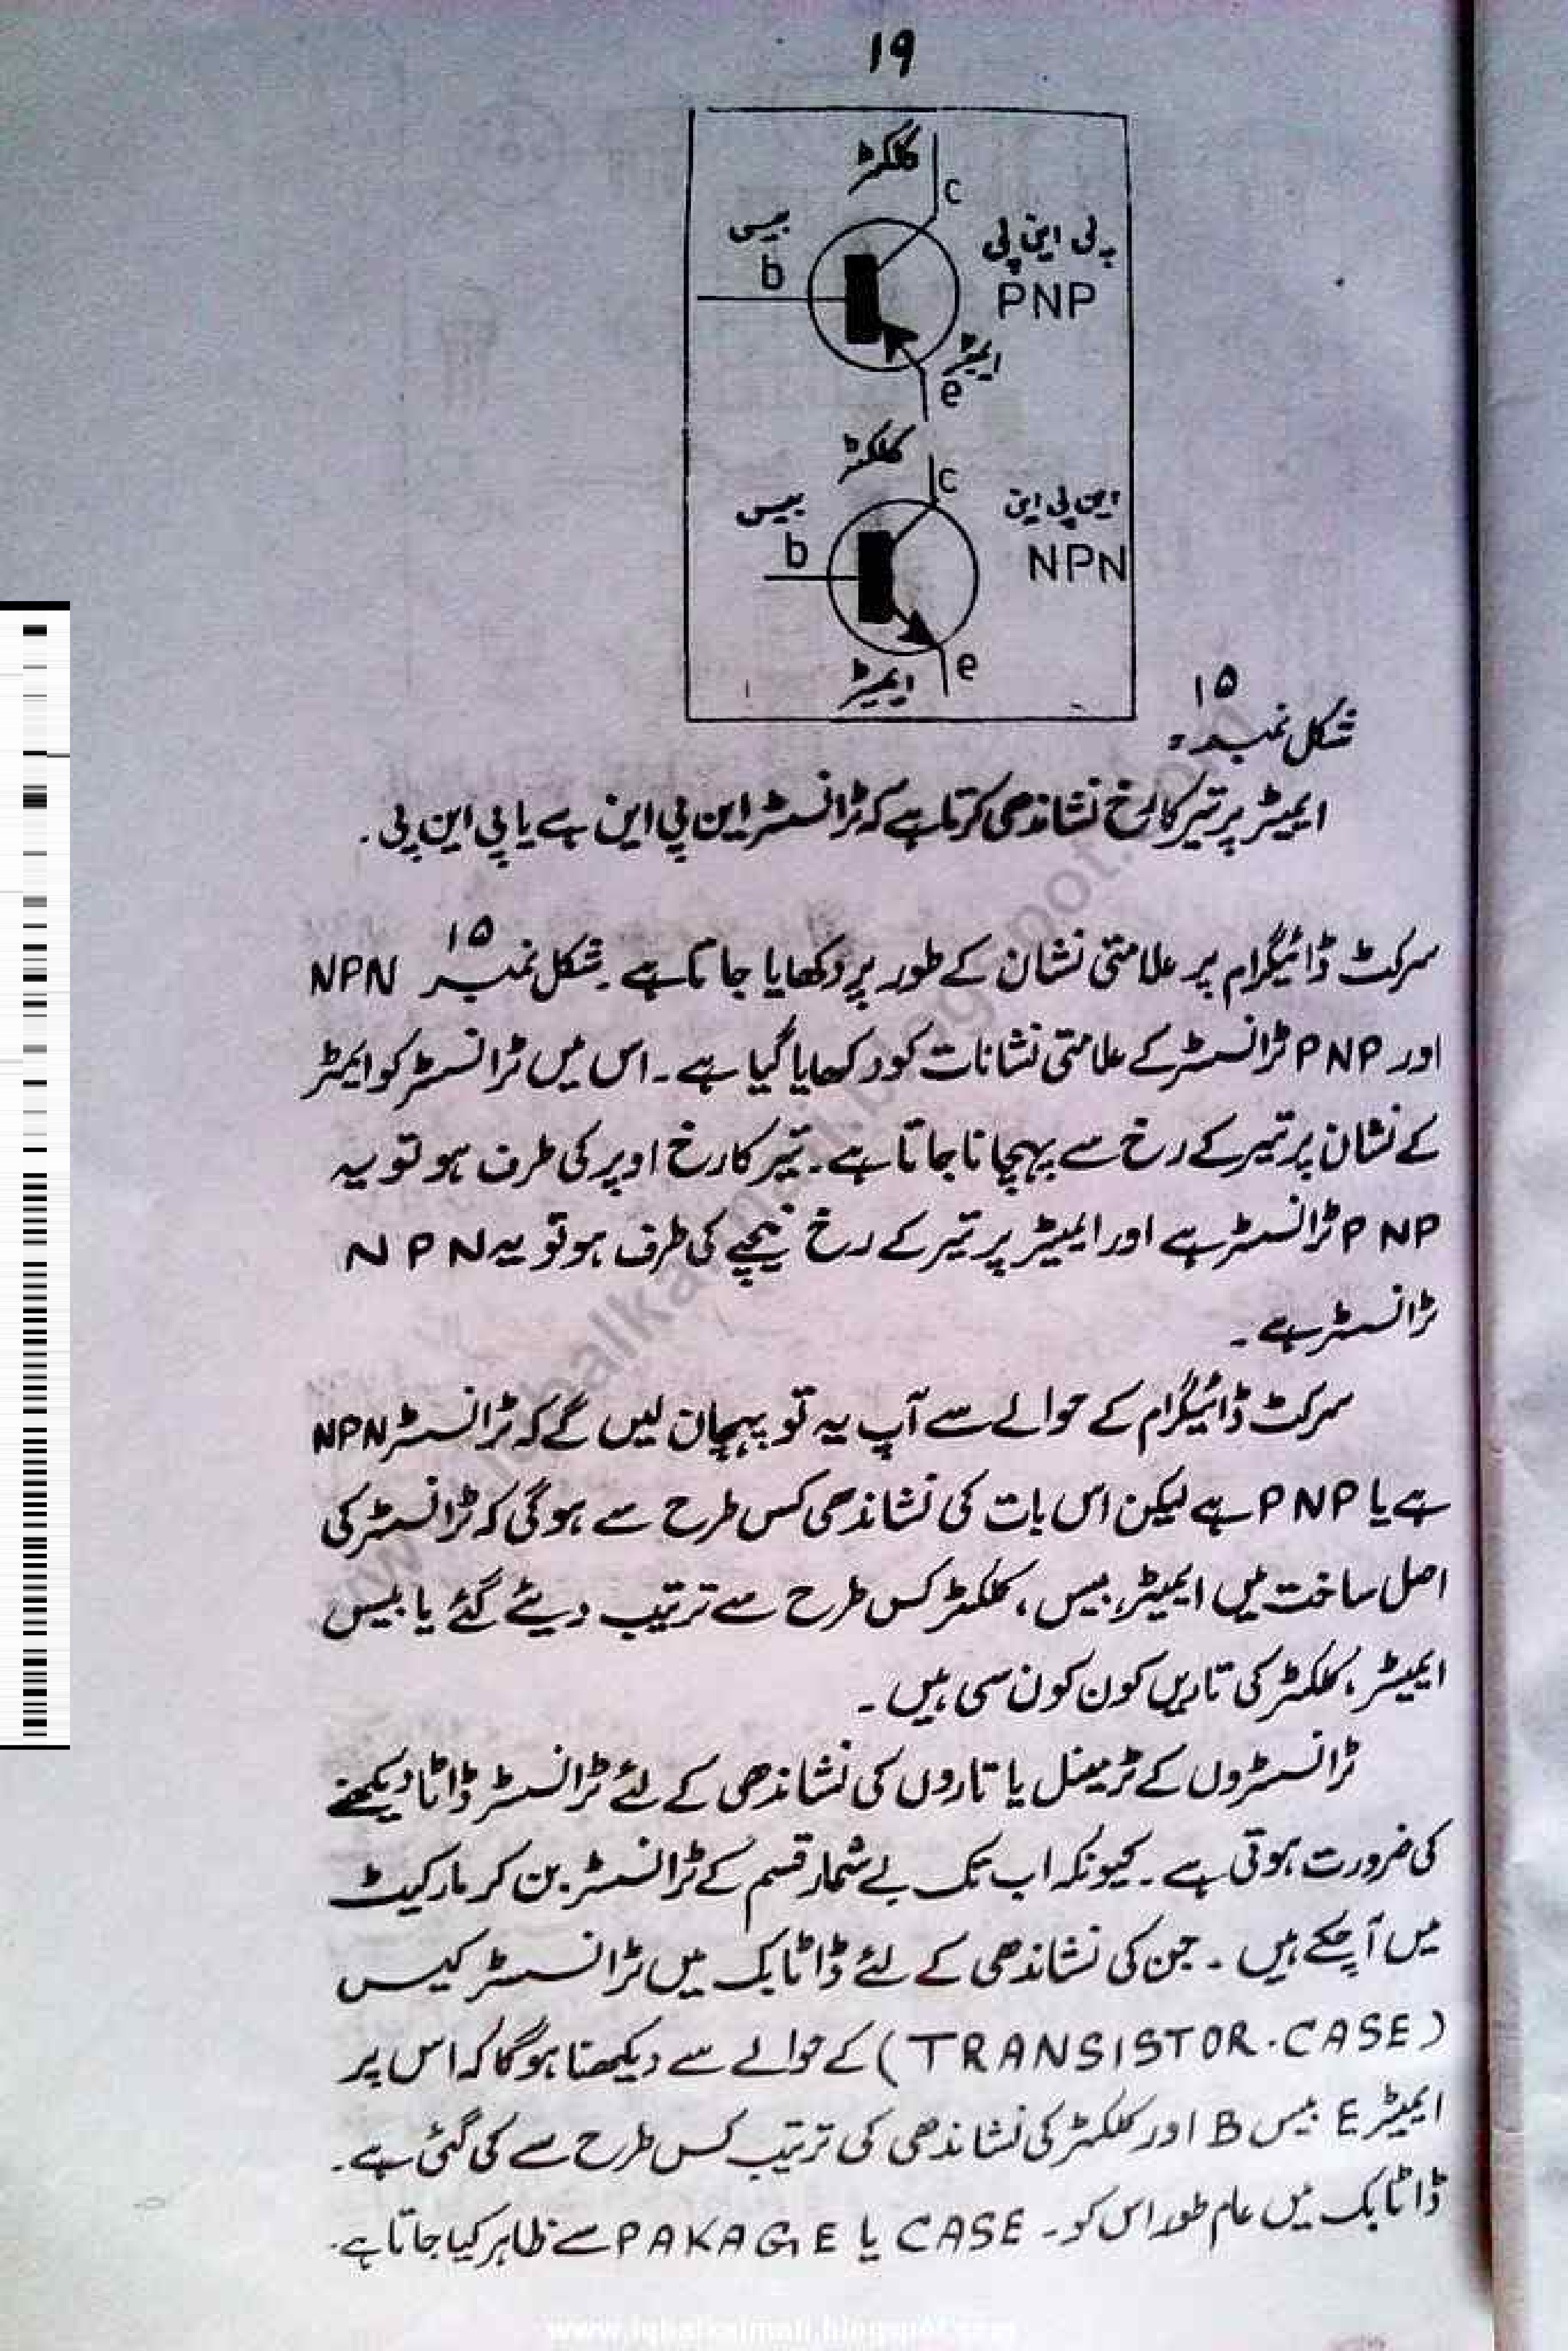 ۱۹
کلکٹر
c
بیس
پی این پی
b
PNP
ایمیٹر
e
کلکٹر
c
بیس
این پی این
b
NPN
e
ایمیٹر
شکل نمبر ۱۵
ایمیٹر پر تیر کا رخ نشاندھی کرتا ہے کہ ٹرانسسٹر این پی این ہے یا پی این پی ۔
سرکٹ ڈائیگرام پر علامتی نشان کے طور پر دکھایا جاتا ہے ۔ شکل نمبر ۱۵ NPN
اور PNP ٹرانسسٹر کے علامتی نشانات کو دکھایا گیا ہے ۔ اس میں ٹرانسسٹر کو ایمٹر
کے نشان پر تیر کے رخ سے پہچانا جاتا ہے ۔ تیر کا رخ اوپر کی طرف ہو تو یہ
PNP ٹرانسسٹر ہے اور ایمیٹر پر تیر کے رخ نیچے کی طرف ہو تو یہ NPN
ٹرانسسٹر ہے ۔
سرکٹ ڈائیگرام کے حوالے سے آپ یہ تو پہچان لیں گے کہ ٹرانسسٹر NPN
ہے یا PNP ہے لیکن اس بات کی نشاندھی کس طرح سے ہو گی کہ ٹرانسسٹر کی
اصل ساخت میں ایمیٹر، بیس ، کلکٹر کس طرح سے ترتیب دیئے گئے یا بیس
ایمیٹر ، کلکٹر کی تاریں کون کون سی ہیں ۔
ٹرانسسٹروں کے ٹرمینل یا تاروں کی نشاندھی کے لئے ٹرانسسٹر ڈاٹا دیکھنے
کی ضرورت ہوتی ہے ۔ کیونکہ اب تک بے شمار قسم کے ٹرانسسٹر بن کر مارکیٹ
میں آ چکے ہیں ۔ جن کی نشاندھی کے لئے ڈاٹا بک میں ٹرانسسٹر کیس
(TRANSISTOR.CASE) کے حوالے سے دیکھنا ہو گا کہ اس پر
ایمیٹر E بیس B اور کلکٹر کی نشاندھی کی ترتیب کس طرح سے کی گئی ہے ۔
ڈاٹا بک میں عام طور اس کو ۔ CASE یا PAKAGE سے ظاہر کیا جاتا ہے ۔
www.iqbalkalmati.blogspot.com
www.iqbalkalmati.blogspot.com